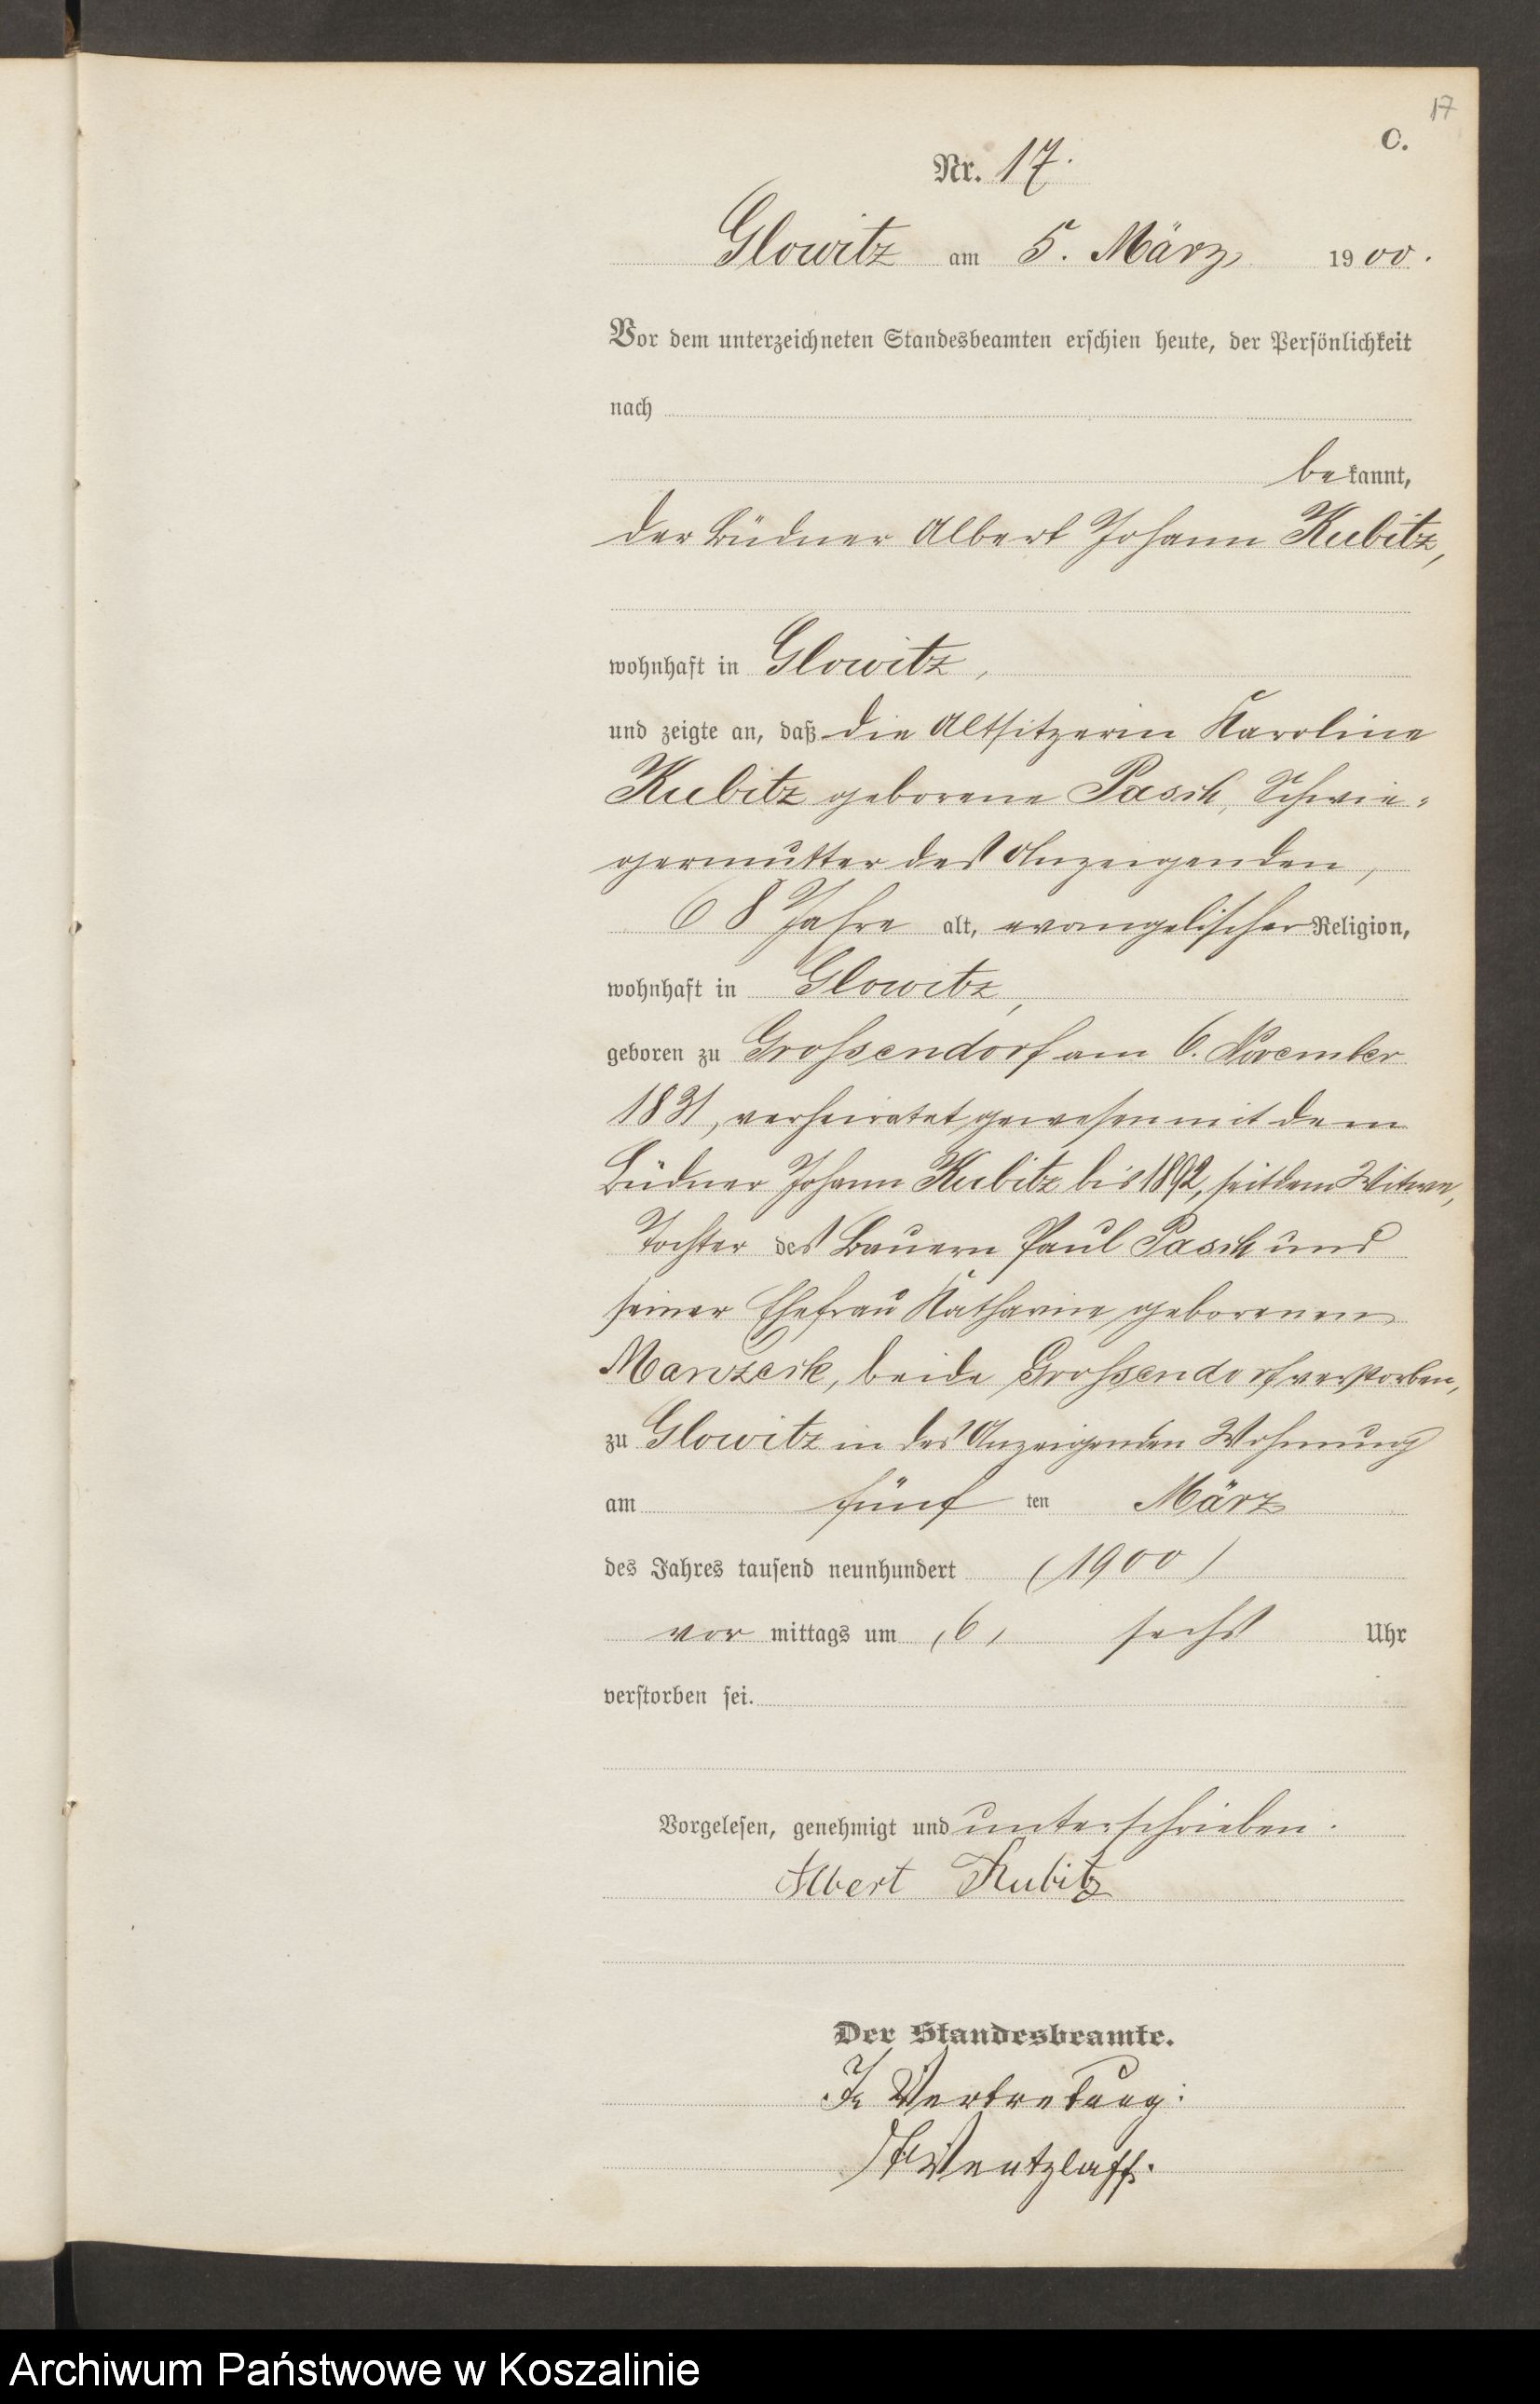 17
C.
Nr. 17.
Glowitz am 5. März 1900.
Vor dem unterzeichneten Standesbeamten erschien heute, der Persönlichkeit
nach
bekannt,
der Büdner Albert Johann Kubitz,
wohnhaft in Glowitz,
und zeigte an, daß die Altsitzerin Karoline
Kubitz geborene Pasch, Schwie-
germutter des Anzeigenden,
68 Jahre alt, evangelischer Religion,
wohnhaft in Glowitz,
geboren zu Grossendorf am 6. November
1831, verheiratet gewesen mit dem
Büdner Johann Kubitz bis 1892, seitdem Witwe,
Tochter des Bauern Paul Pasch und
seiner Ehefrau Katharine geborenen
beide Grossendorf verstorben,
zu Glowitz in des Anzeigenden Wohnung
am fünf ten März
des Jahres tausend neunhundert (1900)
vor mittags um (6) sechs Uhr
verstorben sei.
Vorgelesen, genehmigt und unterschrieben.
Albert Kubitz
Der Standesbeamte.
In Vertretung:
Wentzlaff.
Archiwum Państwowe w Koszalinie